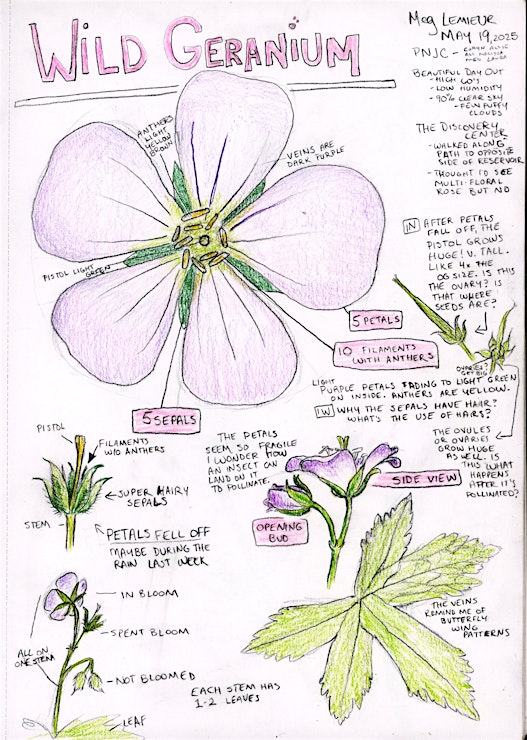 WILD GERANIUM
Meg Lemieur
May 19, 2025
PNJC -
BEAUTIFUL DAY OUT
- HIGH 60'S
- LOW HUMIDITY
- 90% CLEAR SKY
- FEW PUFFY
CLOUDS
THE DISCOVERY
CENTER
- WALKED ALONG
PATH TO OPPOSITE
SIDE OF RESERVOIR
- THOUGHT I'D SEE
MULTI-FLORAL
ROSE BUT NO
ANTHERS
LIGHT
YELLOW
BROWN
VEINS ARE
DARK PURPLE
PISTOL LIGHT
GREEN
IN AFTER PETALS
FALL OFF, THE
PISTOL GROWS
HUGE! V. TALL.
LIKE 4X THE
OG SIZE. IS THIS
THE OVARY? IS
THAT WHERE
SEEDS ARE?
5 PETALS
10 FILAMENTS
WITH ANTHERS
5 SEPALS
OVARIES?
GET BIG
LIGHT
PURPLE PETALS FADING TO LIGHT GREEN
ON INSIDE. ANTHERS ARE YELLOW.
IW WHY THE SEPALS HAVE HAIR?
WHAT'S THE USE OF HAIRS?
THE OVULES
OR OVARIES
GROW HUGE
AS WELL. IS
THIS WHAT
HAPPENS
AFTER IT'S
POLLINATED?
PISTOL
FILAMENTS
W/O ANTHERS
SUPER HAIRY
SEPALS
STEM
PETALS FELL OFF
MAYBE DURING THE
RAIN LAST WEEK
THE PETALS
SEEM SO FRAGILE
I WONDER HOW
AN INSECT CAN
LAND ON IT
TO POLLINATE.
SIDE VIEW
OPENING
BUD
IN BLOOM
SPENT BLOOM
ALL ON
ONE STEM
NOT BLOOMED
LEAF
EACH STEM HAS
1-2 LEAVES
THE VEINS
REMIND ME OF
BUTTERFLY
WING
PATTERNS